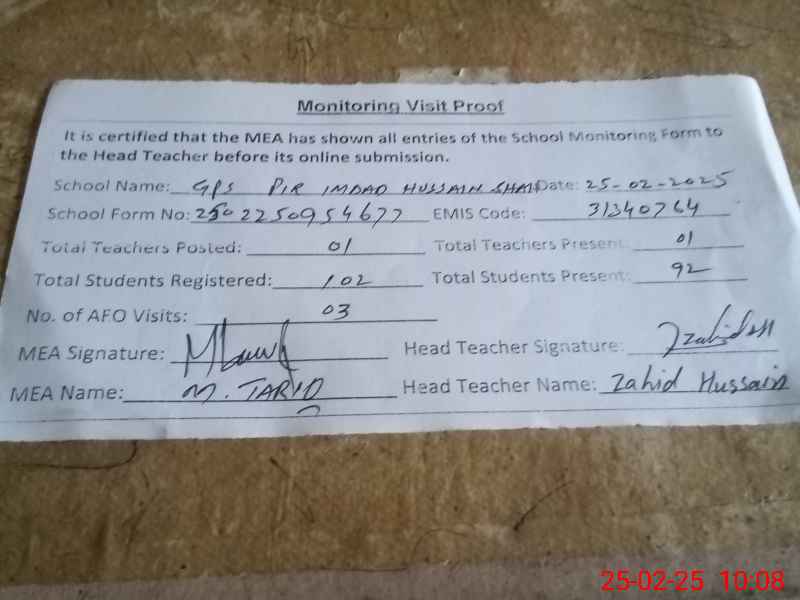 Monitoring Visit Proof
It is certified that the MEA has shown all entries of the School Monitoring Form to
the Head Teacher before its online submission.
School Name: GPS PIR IMDAD HUSSAIN SHAH Date: 25-02-2025
School Form No: 2502250954677 EMIS Code: 31340764
Total Teachers Posted: 01 Total Teachers Present: 01
Total Students Registered: 102 Total Students Present: 92
No. of AFO Visits: 03
MEA Signature: Head Teacher Signature:
MEA Name: M. TARIQ Head Teacher Name: Zahid Hussain
25-02-25 10:08